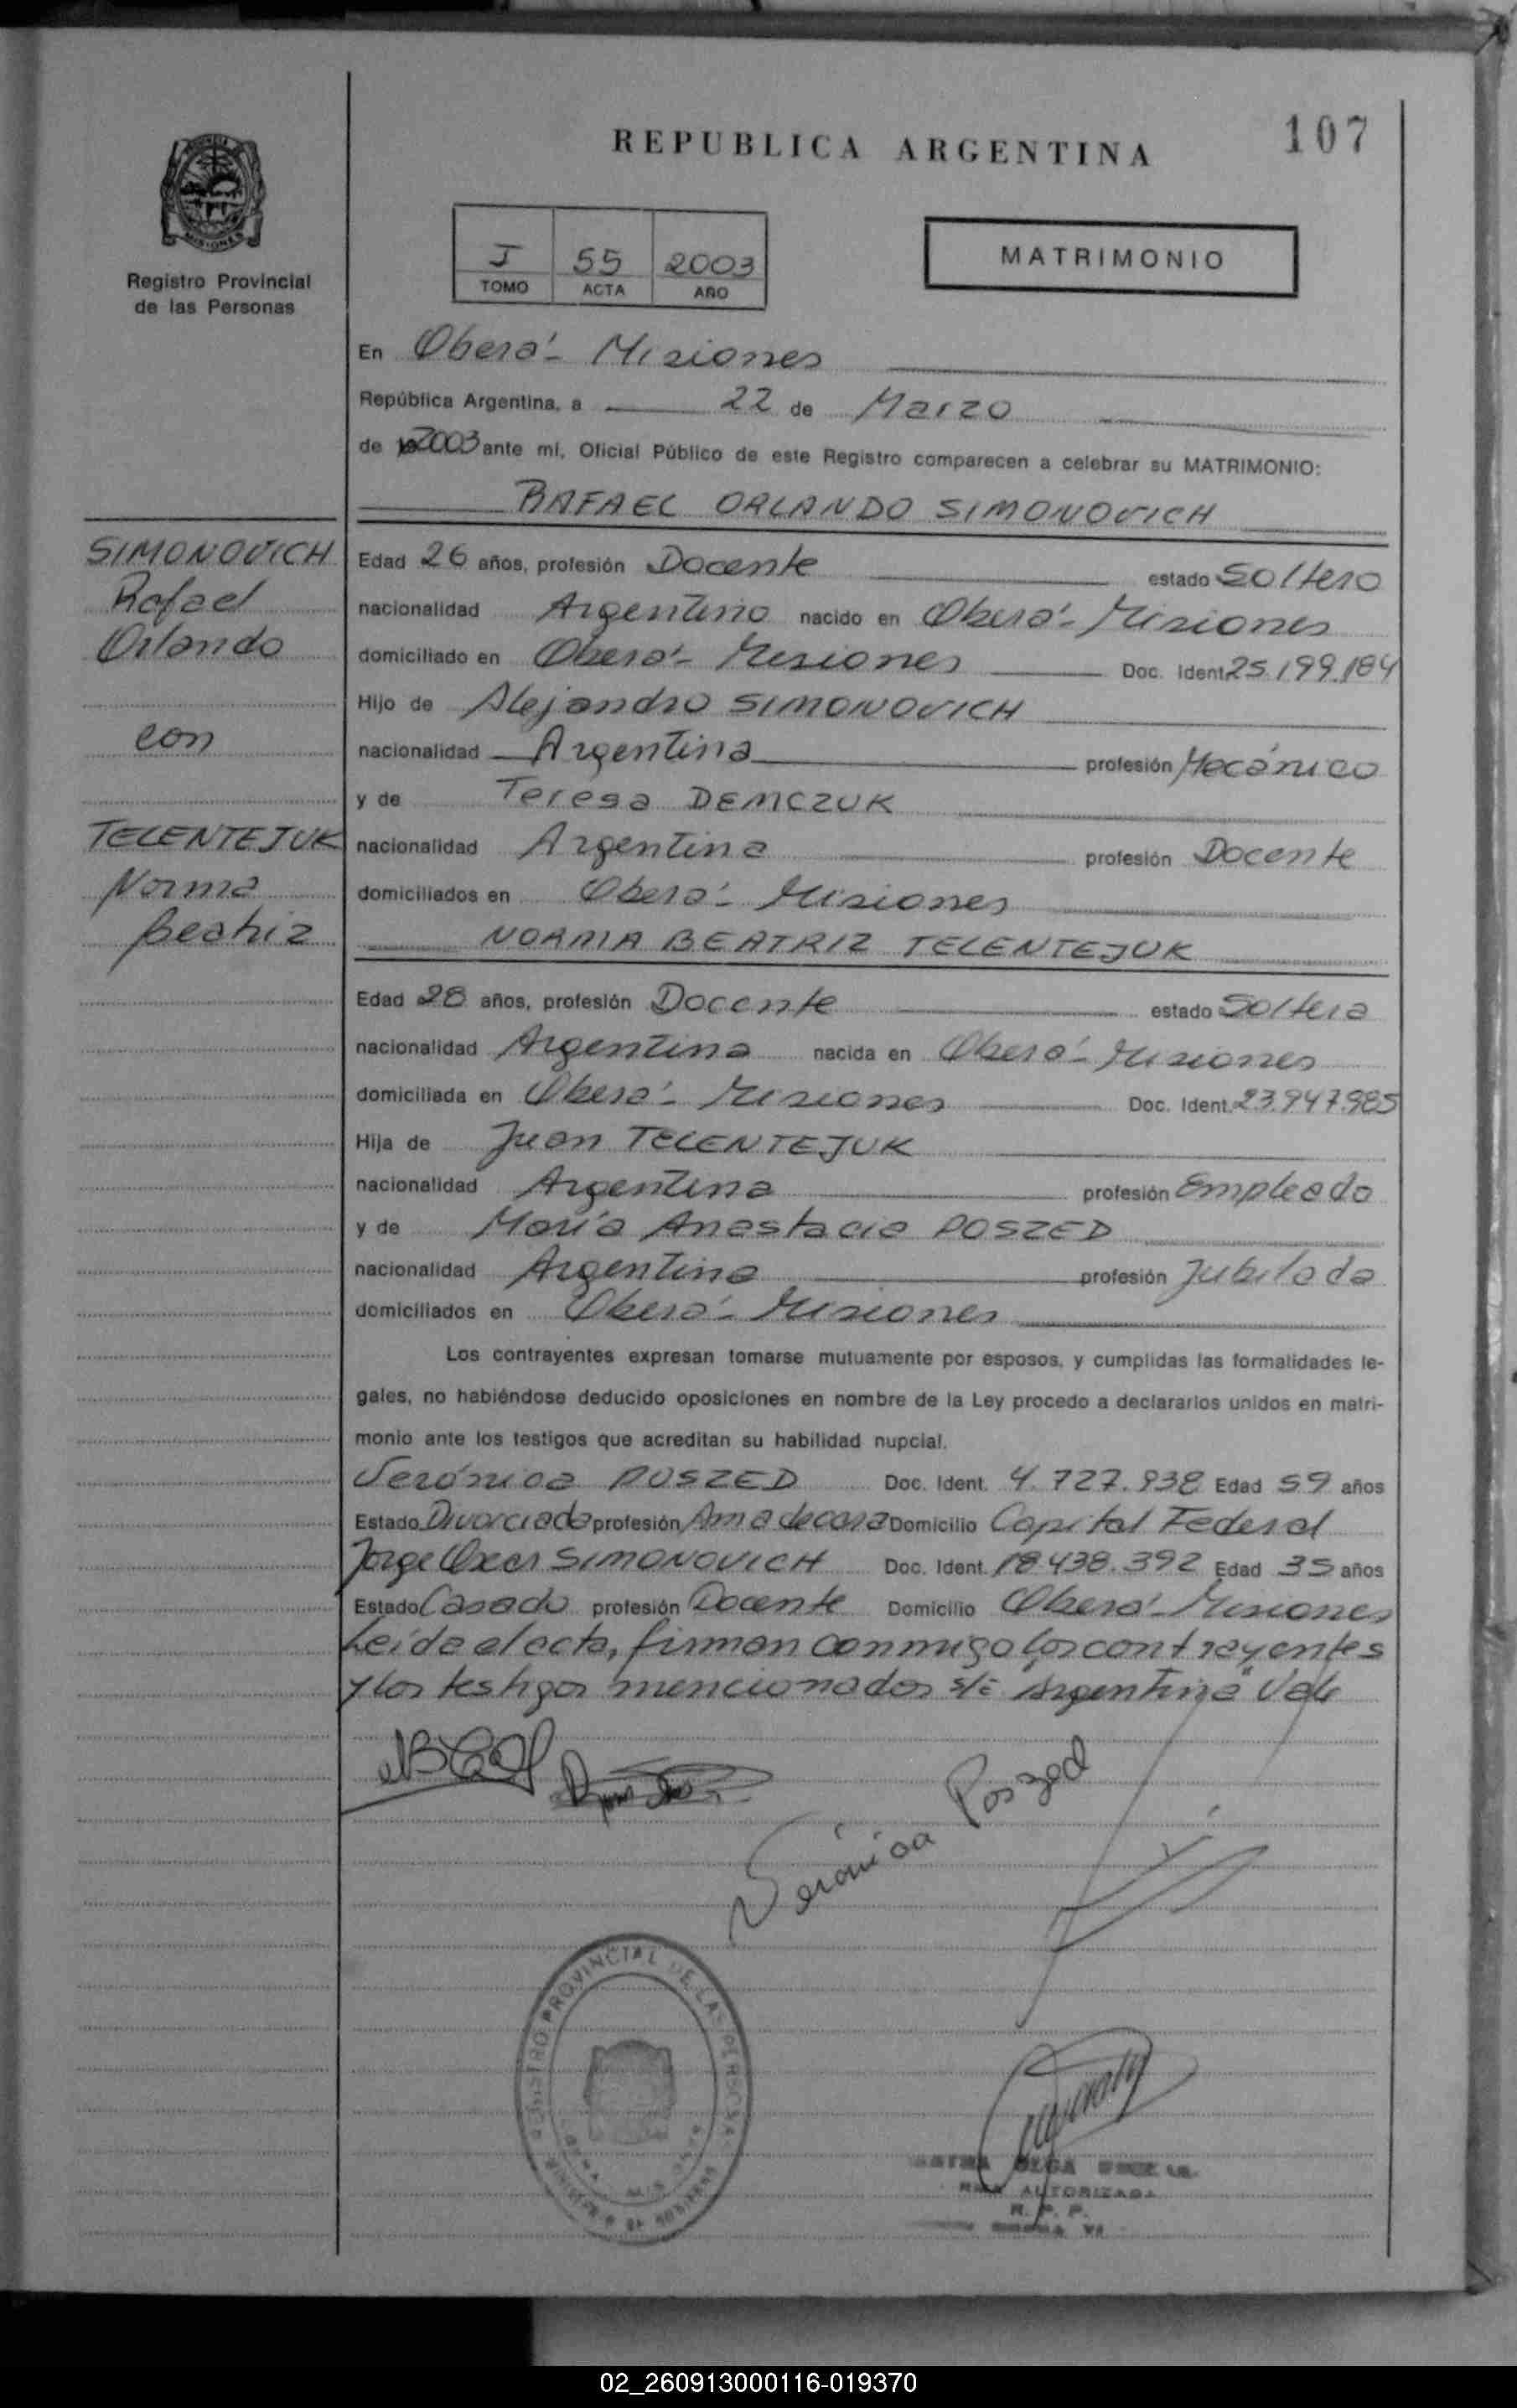 REPUBLICA ARGENTINA
107
MISIONES
Registro Provincial
de las Personas
J 55 2003
TOMO ACTA AÑO
MATRIMONIO
En Oberá - Misiones
República Argentina, a 22 de Marzo
de 2003 ante mí, Oficial Público de este Registro comparecen a celebrar su MATRIMONIO:
RAFAEL ORLANDO SIMONOVICH
SIMONOVICH
Rafael
Orlando
con
TELENTEJUK
Norma
Beatriz
Edad 26 años, profesión Docente estado Soltero
nacionalidad Argentino nacido en Oberá - Misiones
domiciliado en Oberá - Misiones Doc. Ident. 25.199.184
Hijo de Alejandro SIMONOVICH
nacionalidad Argentina profesión Mecánico
y de Teresa DEMCZUK
nacionalidad Argentina profesión Docente
domiciliados en Oberá - Misiones
NORMA BEATRIZ TELENTEJUK
Edad 28 años, profesión Docente estado Soltera
nacionalidad Argentina nacida en Oberá - Misiones
domiciliada en Oberá - Misiones Doc. Ident. 23.947.985
Hija de Juan TELENTEJUK
nacionalidad Argentina profesión Empleado
y de María Anastacia POSZED
nacionalidad Argentina profesión Jubilada
domiciliados en Oberá - Misiones
Los contrayentes expresan tomarse mutuamente por esposos, y cumplidas las formalidades le-
gales, no habiéndose deducido oposiciones en nombre de la Ley procedo a declararlos unidos en matri-
monio ante los testigos que acreditan su habilidad nupcial.
Verónica POSZED Doc. Ident. 4.727.938 Edad 59 años
Estado Divorciada profesión Ama de casa Domicilio Capital Federal
Jorge Oscar SIMONOVICH Doc. Ident. 18.438.392 Edad 35 años
Estado Casado profesión Docente Domicilio Oberá - Misiones
Leída el acta, firman conmigo los contrayentes
y los testigos mencionados s/i "Argentina" Vale
Verónica Poszed
REGISTRO PROVINCIAL DE LAS PERSONAS
OLGA
AUTORIZADA
R. P. P.
02_260913000116-019370